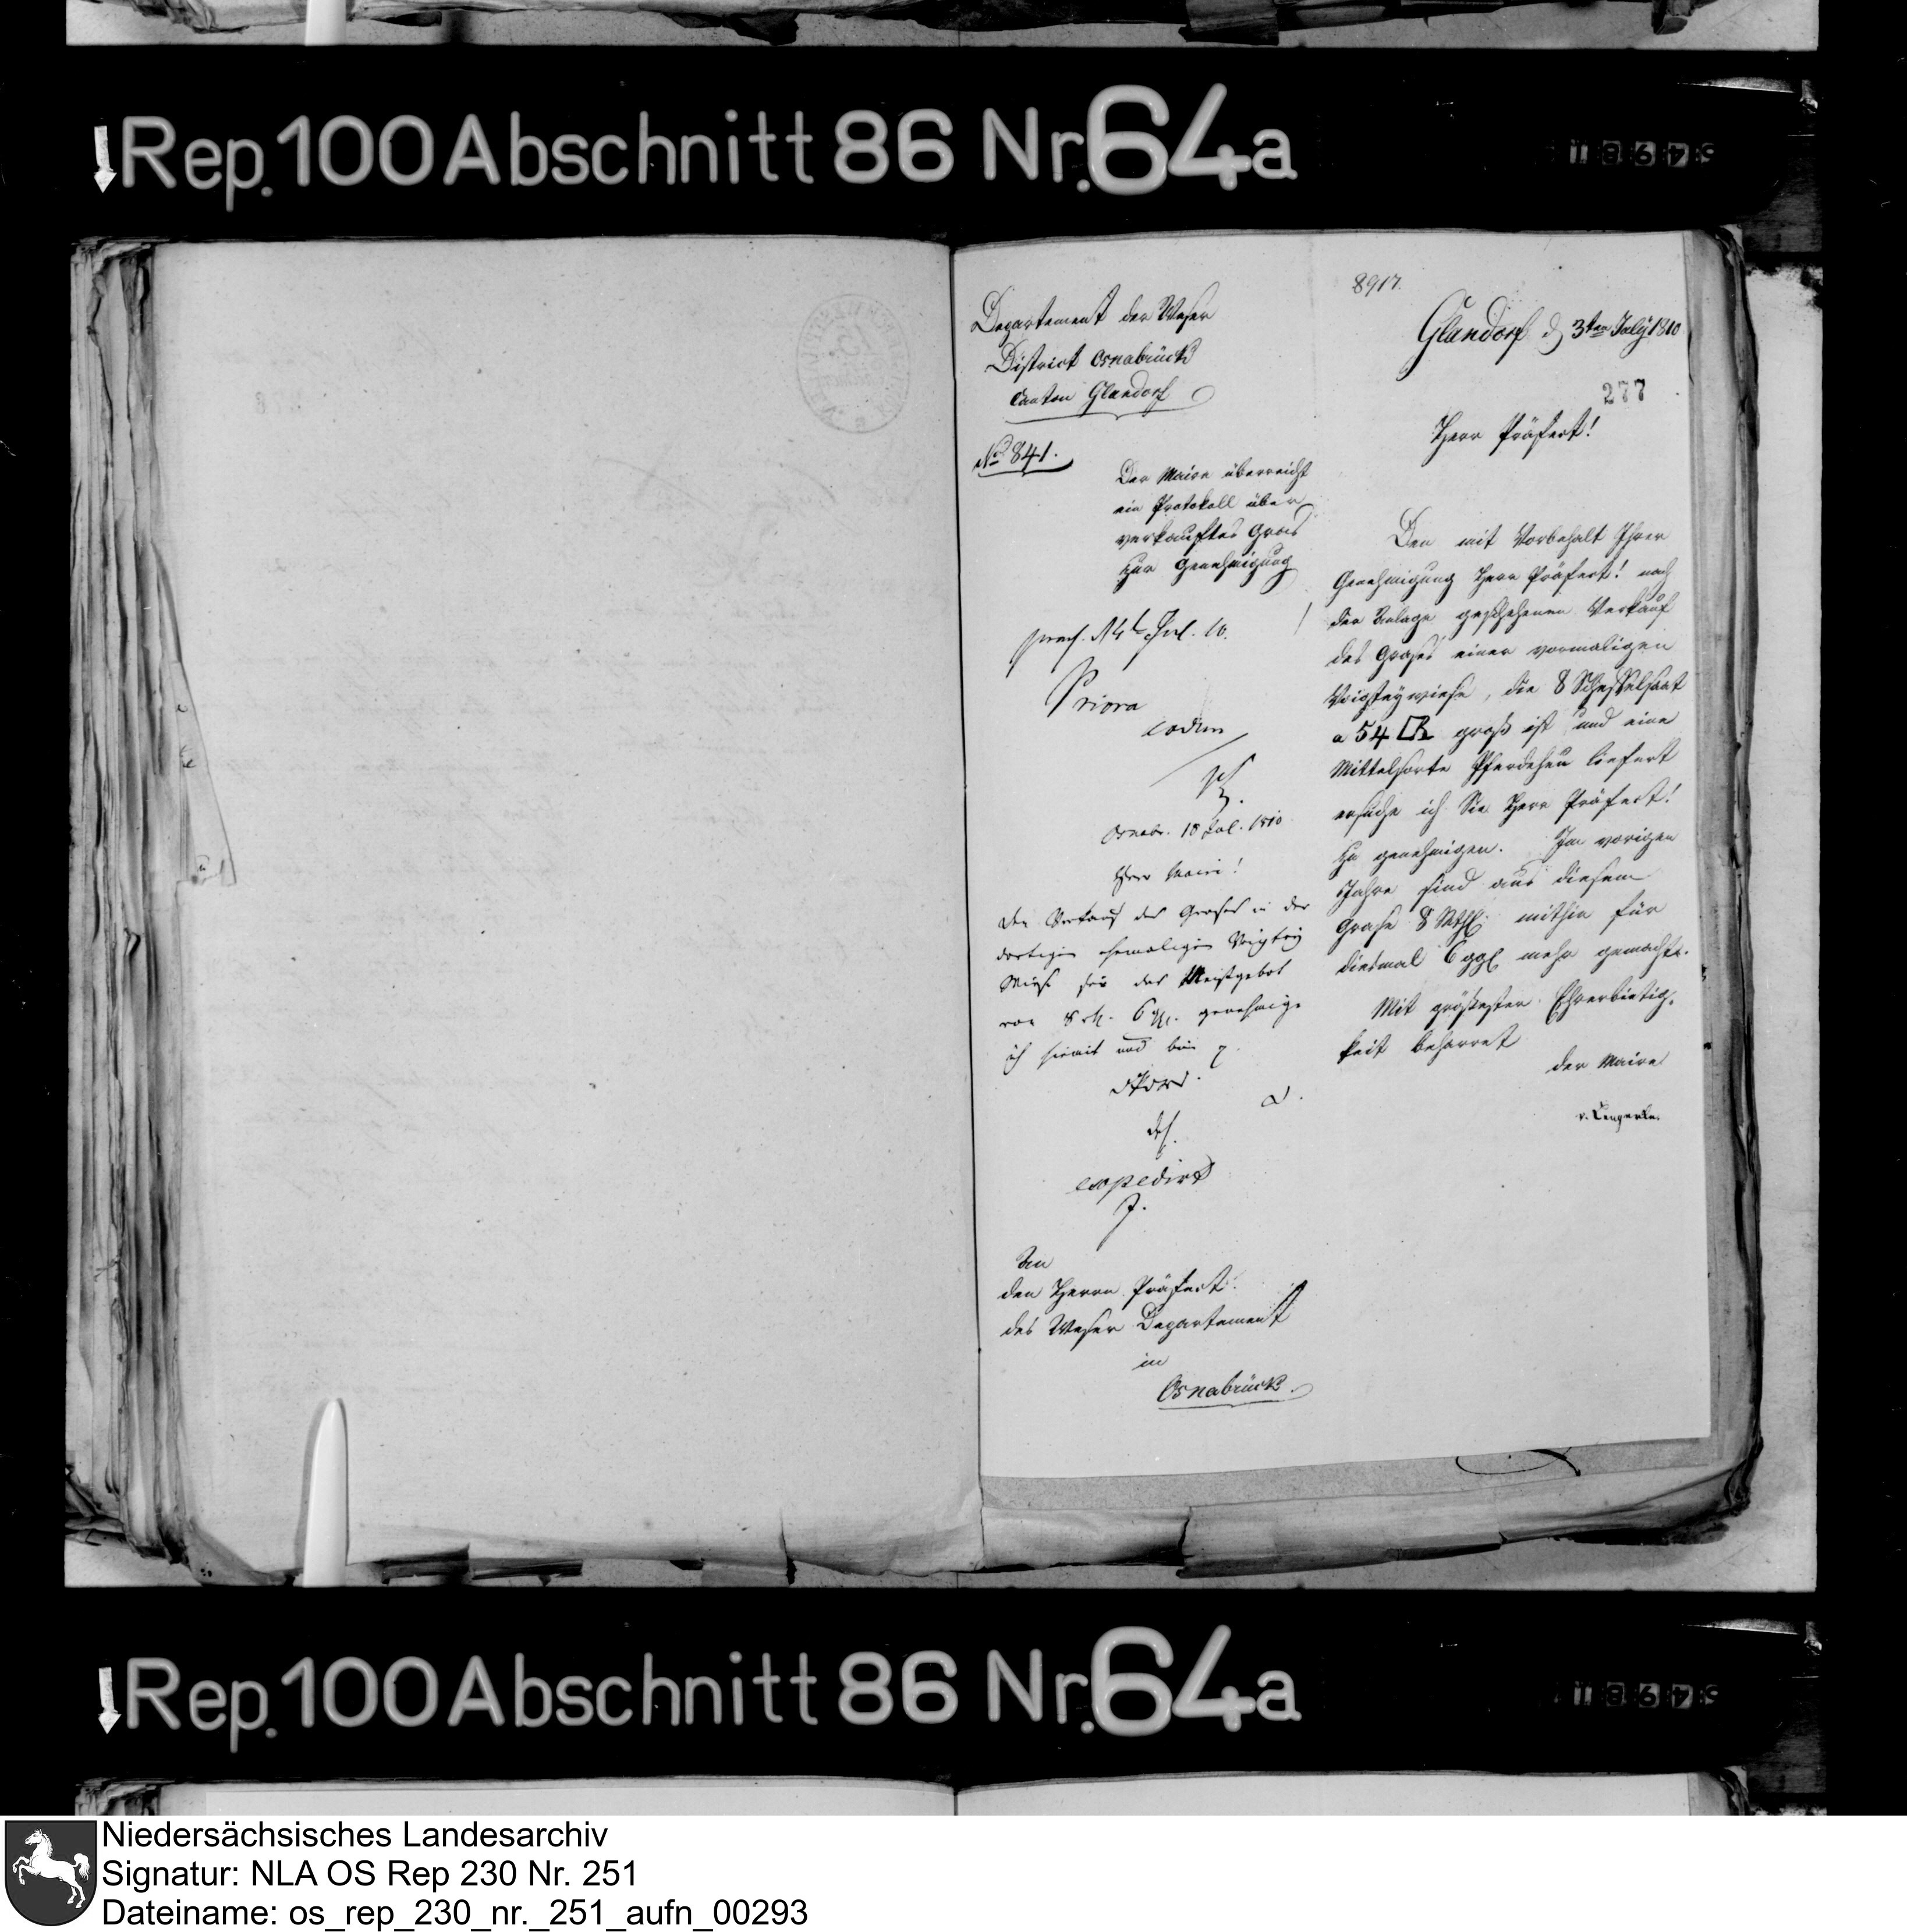 Rep. 100 Abschnitt 86 Nr. 64a
8917.
Departement der Weser
District Osnabrück
Canton Glandorf
Glandorf d 3ten July 1810
277
Herr Präfect!
No 841.
Der Maire überreicht
ein Protokoll über
verkauftes Gras
zur Genehmigung
praes. d 14t Jul. 10.
Priora
eodem
Osnabr. 18 Jul. 1810
Herr Maire!
Den Verkauf des Grases in der
dortigen ehemaligen Voigtey
Wiese für das Meistgebot
von 8 rthl. 6 ggl. genehmige
ich hiemit und bin
expedirt
An
den Herrn Präfect
des Weser Departement
in
Osnabrück
Den mit Vorbehalt Ihrer
Genehmigung Herr Präfect! nach
der Anlage geschehenen Verkauf
des Grases einer vormaligen
Voigteywiese, die 8 Scheffelsaat
a 54 □R groß ist und eine
Mittelsorte Pferdeheu liefert
ersuche ich Sie Herr Präfect!
zu genehmigen. Im vorigen
Jahre sind aus diesem
Grase 8 Rthl. mithin für
diesmal 6 ggl mehr gemacht.
Mit größester Ehrerbietig-
keit beharret
der Maire
v. Lengerke.
Rep. 100 Abschnitt 86 Nr. 64a
Niedersächsisches Landesarchiv
Signatur: NLA OS Rep 230 Nr. 251
Dateiname: os_rep_230_nr._251_aufn_00293